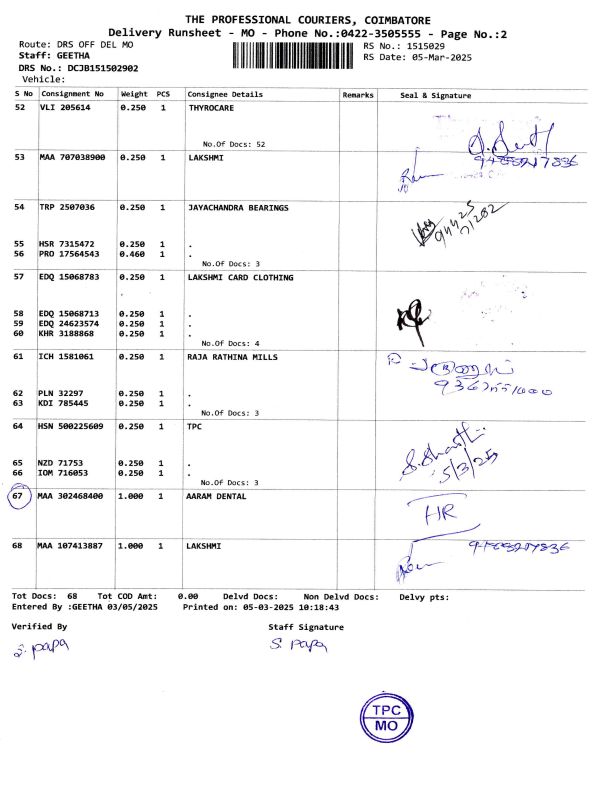 THE PROFESSIONAL COURIERS, COIMBATORE
Delivery Runsheet - MO - Phone No.:0422-3505555 - Page No.:2
Route: DRS OFF DEL MO RS No.: 1515029
Staff: GEETHA RS Date: 05-Mar-2025
DRS No.: DCJB151502902
Vehicle:
S No Consignment No Weight PCS Consignee Details Remarks Seal & Signature
52 VLI 205614 0.250 1 THYROCARE
No.Of Docs: 52
53 MAA 707038900 0.250 1 LAKSHMI 9488217836
54 TRP 2507036 0.250 1 JAYACHANDRA BEARINGS
94425
71282
55 HSR 7315472 0.250 1 .
56 PRO 17564543 0.460 1 .
No.Of Docs: 3
57 EDQ 15068783 0.250 1 LAKSHMI CARD CLOTHING
58 EDQ 15068713 0.250 1 .
59 EDQ 24623574 0.250 1 .
60 KHR 3188868 0.250 1 .
No.Of Docs: 4
61 ICH 1581061 0.250 1 RAJA RATHINA MILLS
62 PLN 32297 0.250 1 .
63 KDI 785445 0.250 1 .
No.Of Docs: 3
64 HSN 500225609 0.250 1 TPC
65 NZD 71753 0.250 1 . 5/3/25
66 IOM 716053 0.250 1 .
No.Of Docs: 3
67 MAA 302468400 1.000 1 AARAM DENTAL HR
68 MAA 107413887 1.000 1 LAKSHMI 9488217836
Tot Docs: 68 Tot COD Amt: 0.00 Delvd Docs: Non Delvd Docs: Delvy pts:
Entered By :GEETHA 03/05/2025 Printed on: 05-03-2025 10:18:43
Verified By Staff Signature
S. papa S. papa
TPC
MO